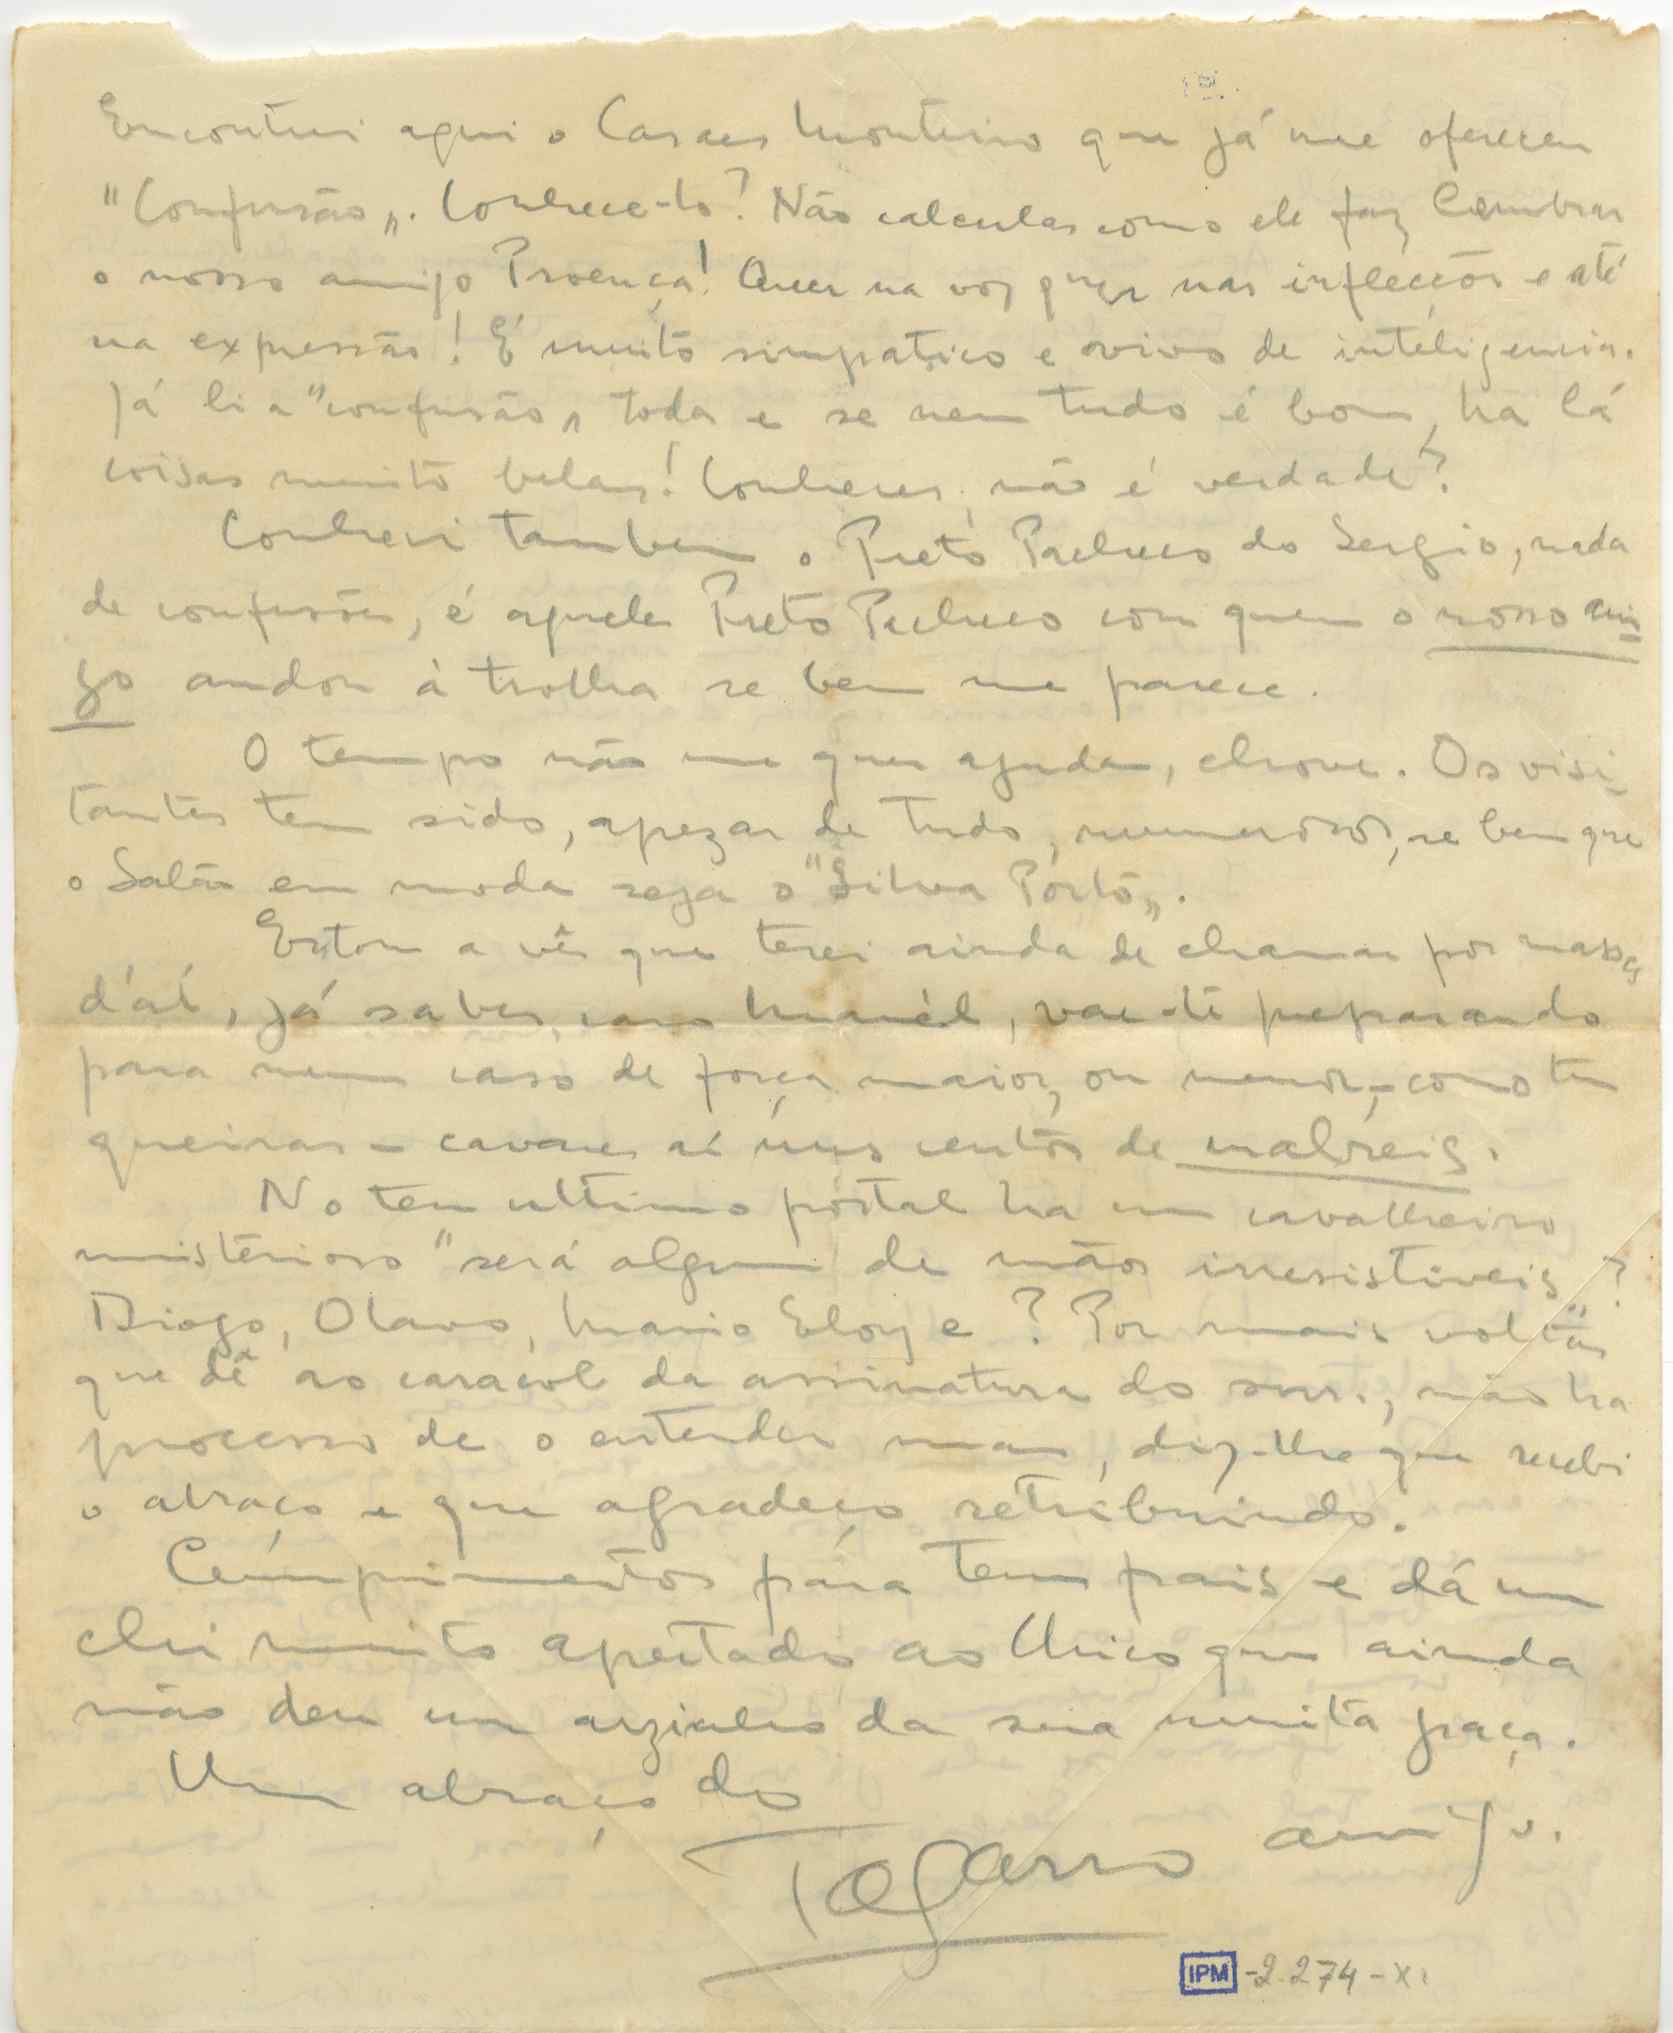 Encontrei aqui o Casaes Monteiro que já me ofereceu
"Confusão„. Conhece-lo? Não calculas como ele faz lembrar
o nosso amigo Proença! Quer na voz quer nas inflecções e até
na expressão! É muito simpatico e vivo de inteligencia.
Já li a "confusão„ toda e se nem tudo é bom, ha lá
coisas muito belas! Conheces, não é verdade?
Conheci tambem o Preto Pacheco do Sergio, nada
de confusões, é aquele Preto Pacheco com quem o nosso ami
go andou à trolha se bem me parece.
O tempo não me quer ajudar, chove. Os visi-
tantes tem sido, apezar de tudo, numerosos, se bem que
o Salão em moda seja o "Silva Pôrto„.
Estou a vêr que terei ainda de chamar por massas
d'aí, já sabes, caro Manél, vae-te preparando
para num caso de força maior, ou menor, - como tu
queiras - cavares aí uns centos de malreis.
No teu ultimo postal ha um cavalheiro
mistérioso "será algum de mãos irresistiveis„?
Diogo, Olavo, Mario Eloy e ? Por mais voltas
que dê ao caracol da assinatura do snr., não ha
processo de o entender mas, diz-lhe que recebi
o abraço e que agradeço retribuindo.
Cumprimentos para teus pais e dá um
chi muito apertado ao Chico que ainda
não deu um arzinho da sua muita graça.
Um abraço do
amigo.
Tagarro
IPM -2.274-XI